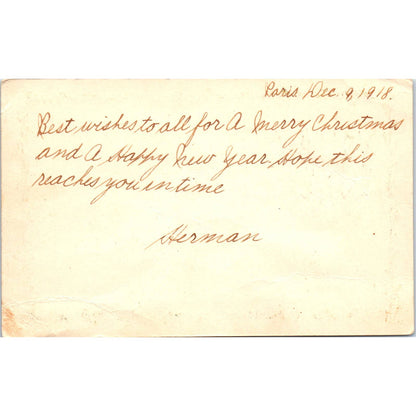 Paris Dec. 9, 1918.
Best wishes to all for A Merry Christmas
and A Happy New Year. Hope this
reaches you in time
Herman